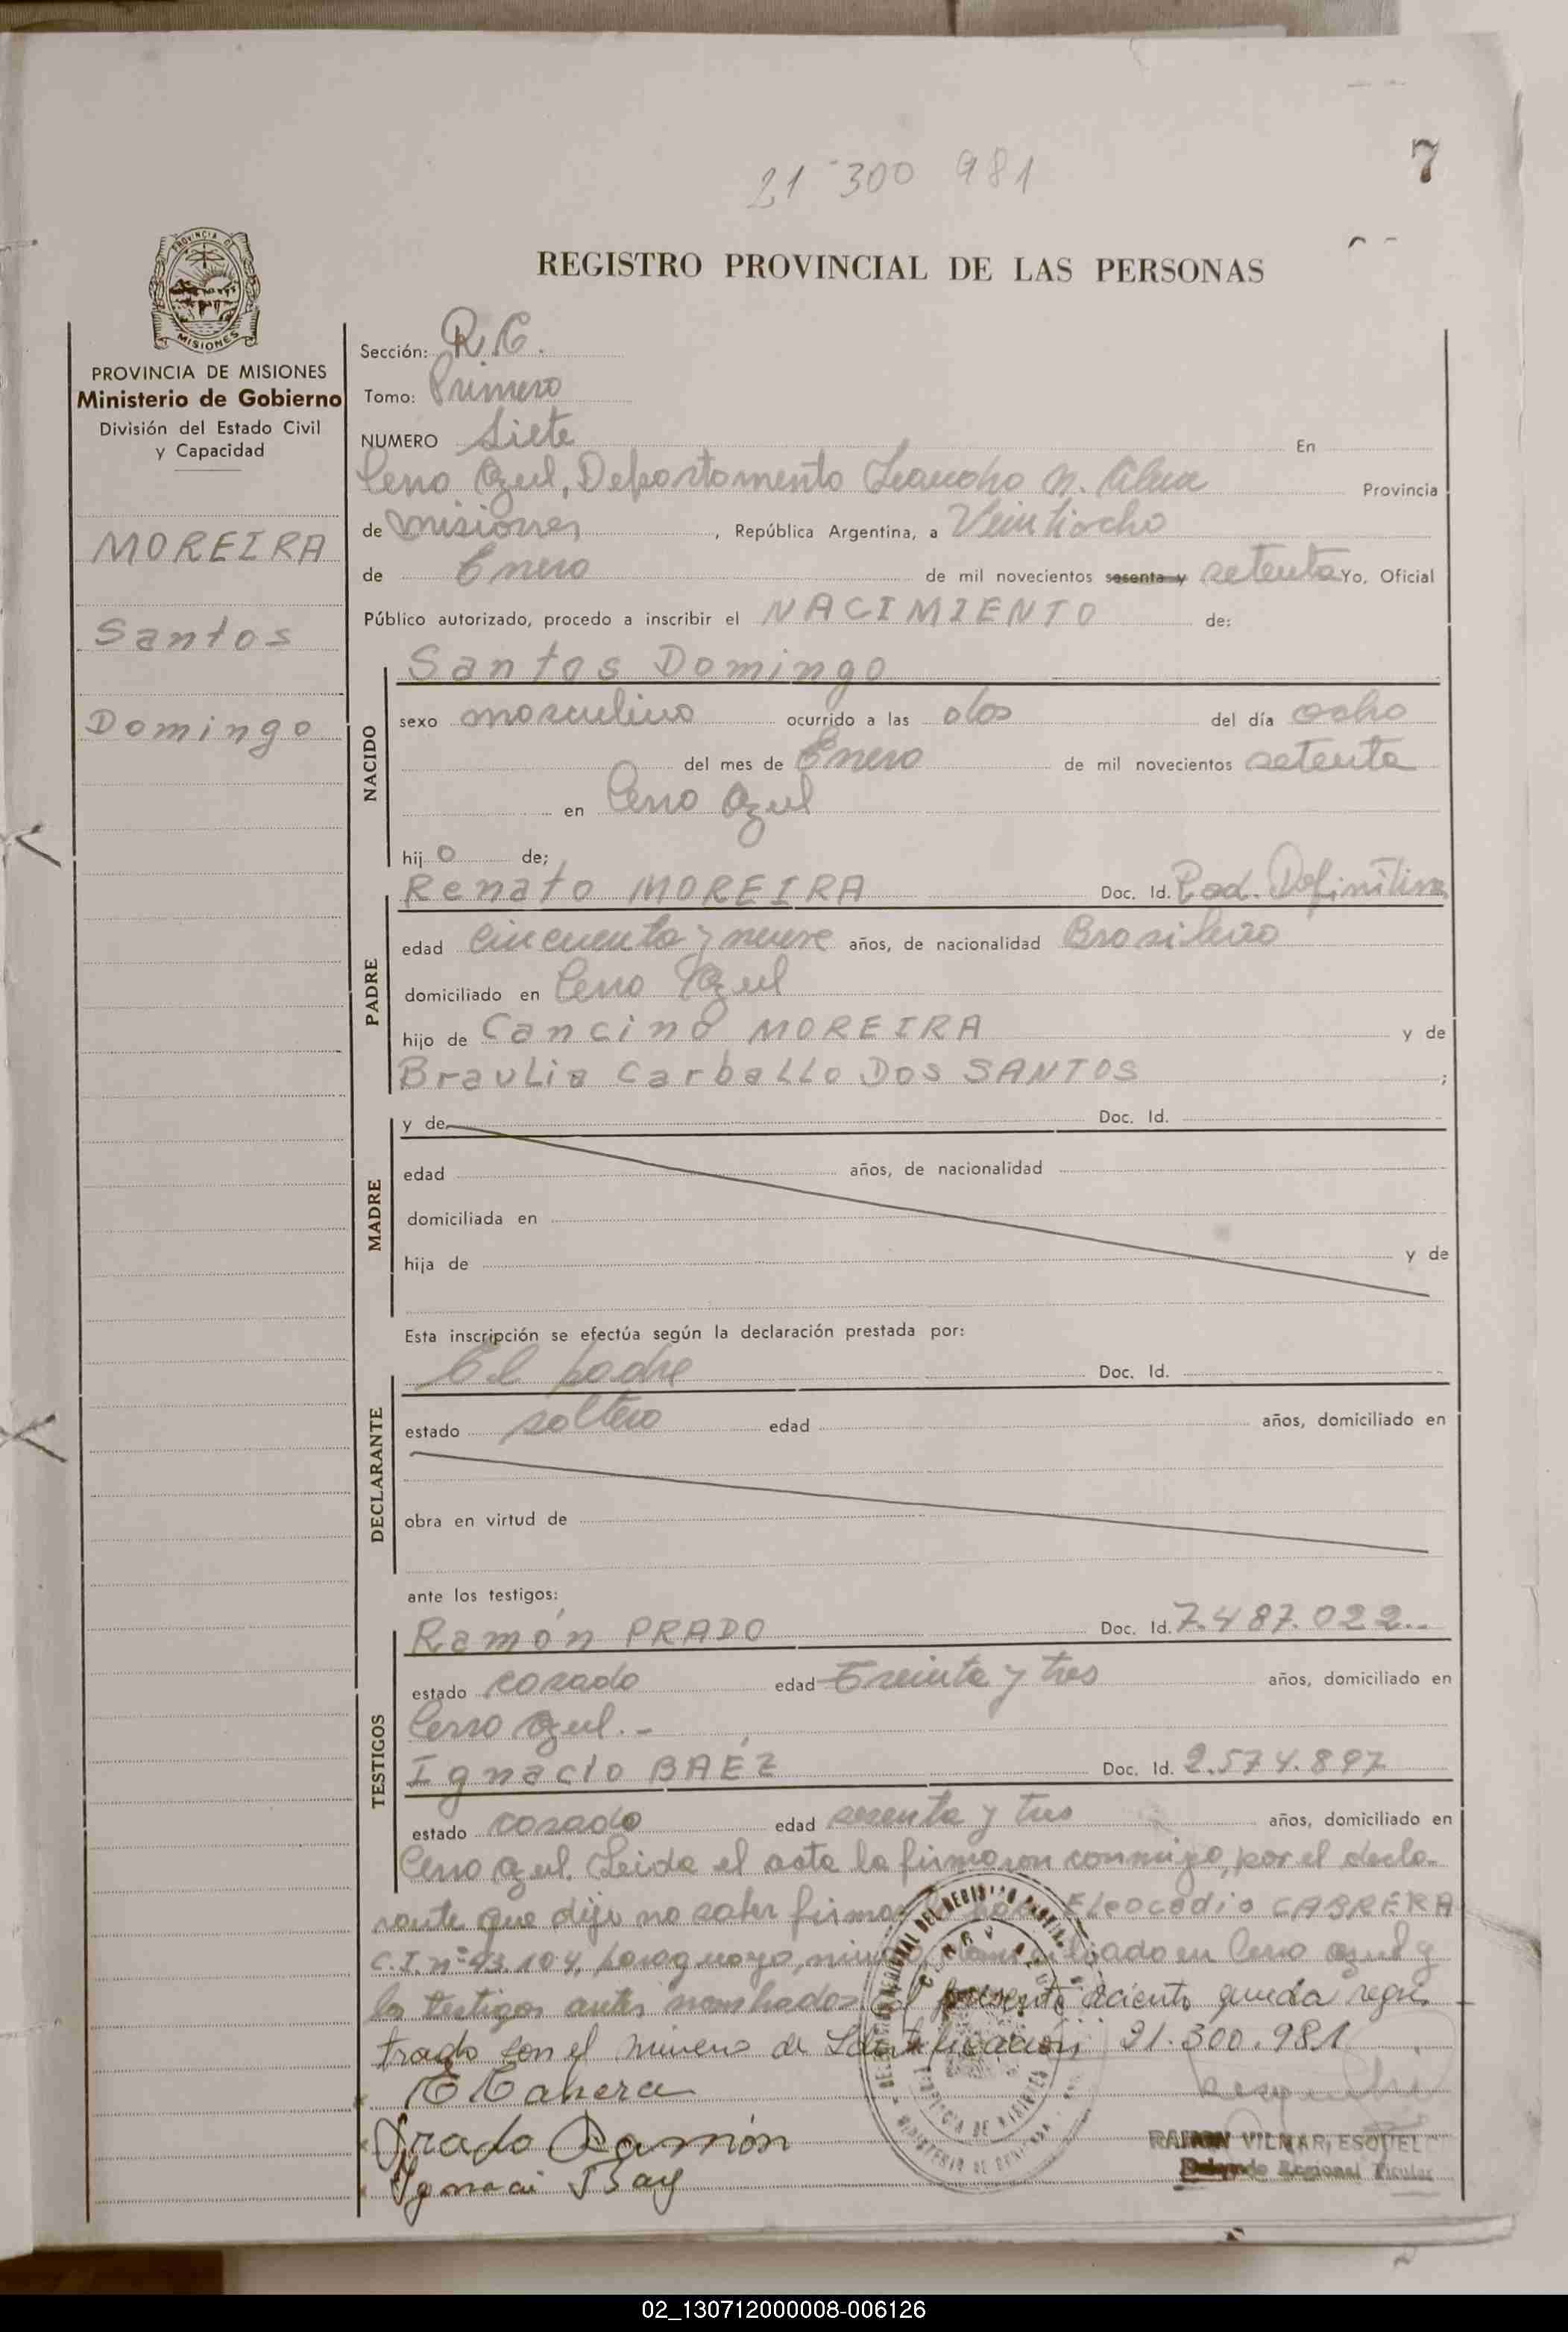 7
21 300 981
REGISTRO PROVINCIAL DE LAS PERSONAS
PROVINCIA DE MISIONES
Ministerio de Gobierno
División del Estado Civil
y Capacidad
MOREIRA
Santos
Domingo
Sección: R.C.
Tomo: Primero
NUMERO Siete En
Cerro Azul, Departamento Leandro N. Alem Provincia
de Misiones, República Argentina, a Veintiocho
de Enero de mil novecientos sesenta y setenta Yo, Oficial
Público autorizado, procedo a inscribir el NACIMIENTO de:
NACIDO
Santos Domingo
sexo masculino ocurrido a las dos del día ocho
del mes de Enero de mil novecientos setenta
en Cerro Azul
hijo de;
PADRE
Renato MOREIRA Doc. Id. Rad. Definitiva
edad cincuenta y nueve años, de nacionalidad Brasilero
domiciliado en Cerro Azul
hijo de Cancino MOREIRA y de
Braulia Carballo DOS SANTOS ;
MADRE
y de Doc. Id.
edad años, de nacionalidad
domiciliada en
hija de y de
Esta inscripción se efectúa según la declaración prestada por:
DECLARANTE
El padre Doc. Id.
estado soltero edad años, domiciliado en
obra en virtud de
ante los testigos:
TESTIGOS
Ramón PRADO Doc. Id. 7.487.022.-
estado casado edad Treinta y tres años, domiciliado en
Cerro Azul.-
Ignacio BAÉZ Doc. Id. 2.574.897
estado casado edad sesenta y tres años, domiciliado en
Cerro Azul. Leida el acta la firmaron conmigo, por el decla-
rante que dijo no saber firmar Eleocadio CABRERA
C.I. nº 93.104, paraguayo, domiciliado en Cerro Azul y
los testigos antes nombrados. El presente naciento queda regis
trado con el número de Identificación 21.300.981
E Cabrera
Prado Ramón
RAMON VILMAR ESQUIVEL
Delegado Regional Titular
02_130712000008-006126